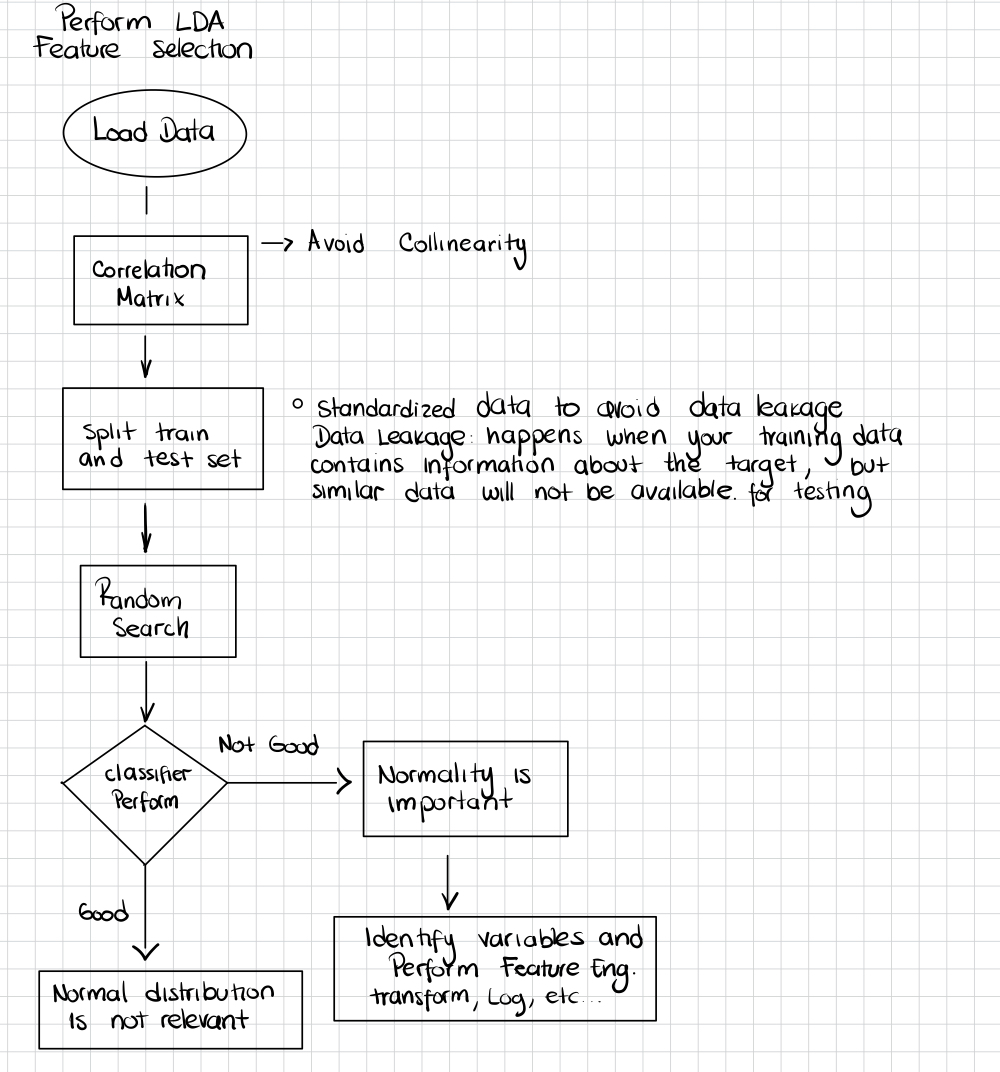 Perform LDA
Feature selection
Load Data
Correlation
Matrix
→ Avoid Collinearity
Split train
and test set
° Standardized data to avoid data leakage
Data Leakage: happens when your training data
contains information about the target, but
similar data will not be available. for testing
Random
Search
classifier
Perform
Not Good
Normality is
important
Good
Identify variables and
Perform Feature Eng.
transform, Log, etc...
Normal distribution
is not relevant